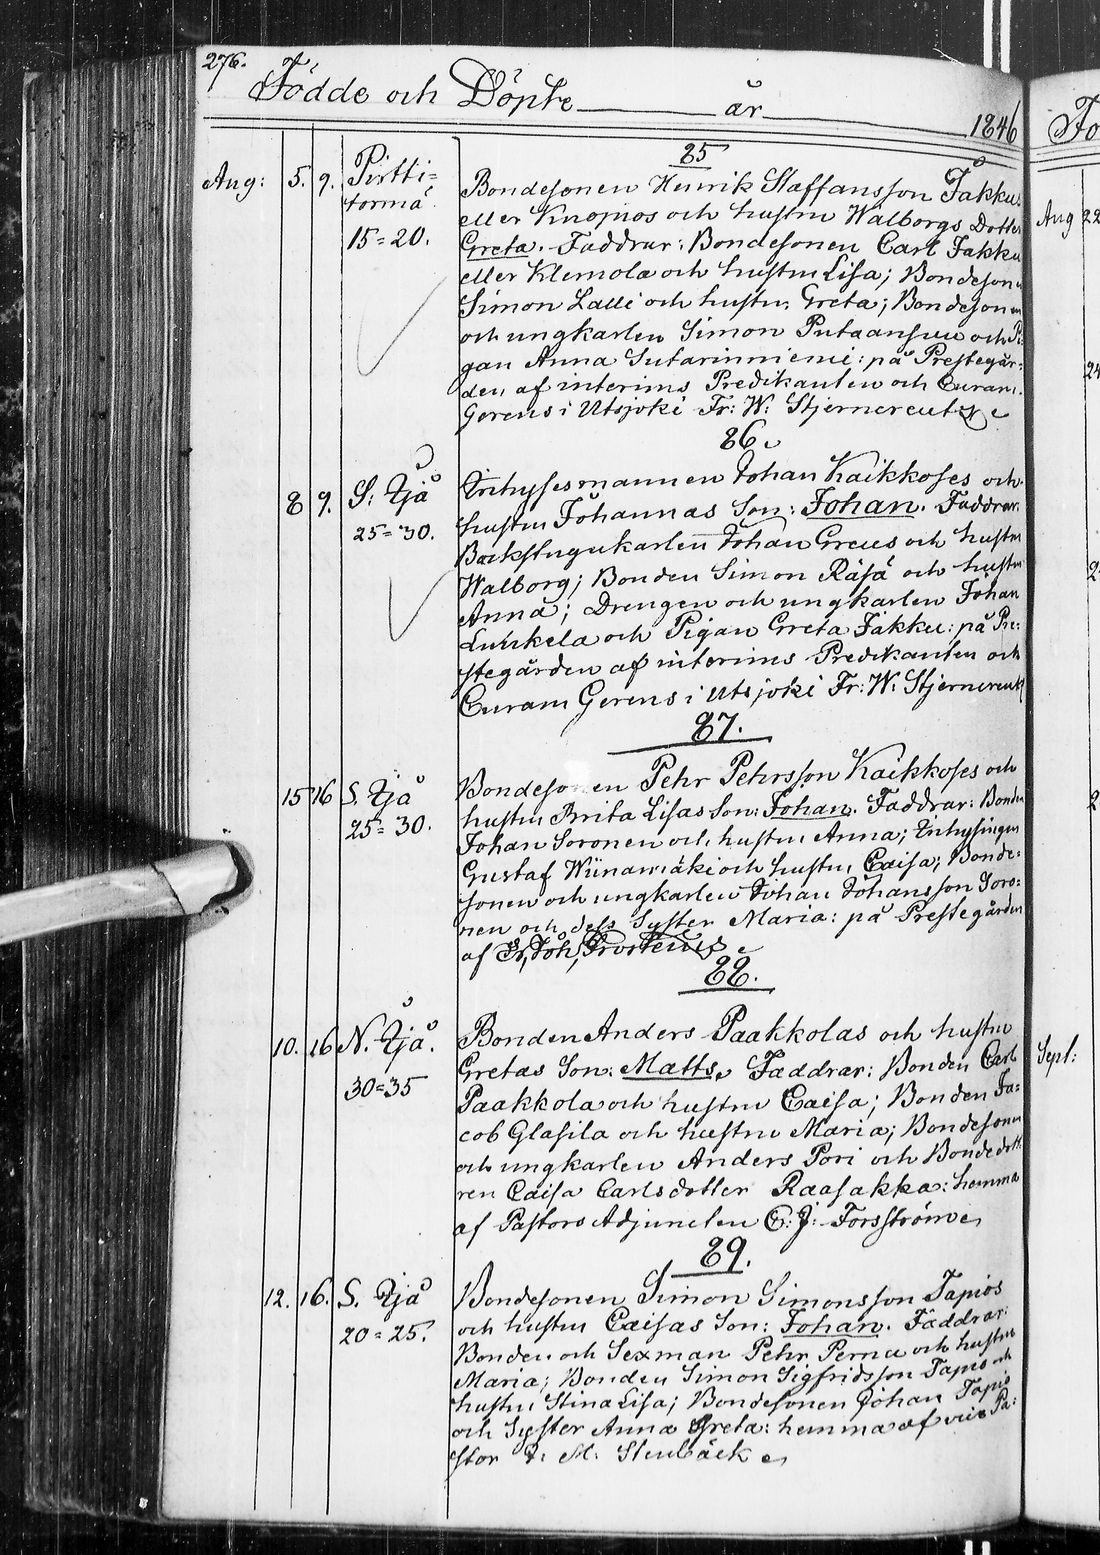 276.
Födde och Döpte år 1846
85
Aug: 5. 9. Pirtti= Bondesonen Henrik Staffansson Jakkus
torma eller Knopios och hustru Walborgs Dotter
15=20. Greta. Faddrar: Bondesonen Carl Jakku
eller Klemola och hustru Lisa; Bondesonen
Simon Lalli och hustru Greta; Bondesonen
och ungkarlen Simon Putaansuu och Pi:
gan Anna Sutarinniemi: på Prestegår:
den af interims Predikanten och Curam.
Gerens i Utsjoki Fr: W: Stjerncreutz
86.
8 9. S: Ijå Inhysesmannen Johan Kaikkoses och
25=30. hustru Johannas Son: Johan. Faddrar:
Backstugukarlen Johan Greus och hustru
Walborg; Bonden Simon Räsä och hustru
Anna; Drengen och ungkarlen Johan
Luukela och Pigan Greta Jakku: på Pre:
stegården af interims Predikanten och
Curam Gerens i Utsjoki Fr: W: Stjerncreutz
87.
15 16 S. Ijå Bondesonen Pehr Pehrsson Kaikkoses och
25=30. hustru Brita Lisas Son: Johan. Faddrar: Bonden
Johan Soronen och hustru Anna; Inhysingen
Gustaf Wiinamäki och hustru Caisa; Bonde:
sonen och ungkarlen Johan Johansson Soro:
nen och dess Syster Maria: på Prestegården
af Joh, Frosterus
88.
10. 16 N. Ijå. Bonden Anders Paakkolas och hustru
30=35 Gretas Son: Matts. Faddrar: Bonden Carl
Paakkola och hustru Caisa; Bonden Ja=
cob Glasila och hustru Maria; Bondesonen
och ungkarlen Anders Pori och Bondedott
ren Caisa Carlsdotter Raasakka: hemma
af Pastors Adjuncten C: J: Forsström
89.
12. 16. S. Ijå Bondesonen Simon Simonsson Tapios
20=25. och hustru Caisas Son: Johan. Faddrar:
Bonden och Sexman Pehr Pernu och hustru
Maria; Bonden Simon Sigfridsson Tapio och
hustru Stina Lisa; Bondesonen Johan Tapio
och Syster Anna Greta: hemma af vice Pa:
stor M: Stenbäck
Fö
Aug 22
24
2
2
Sept: